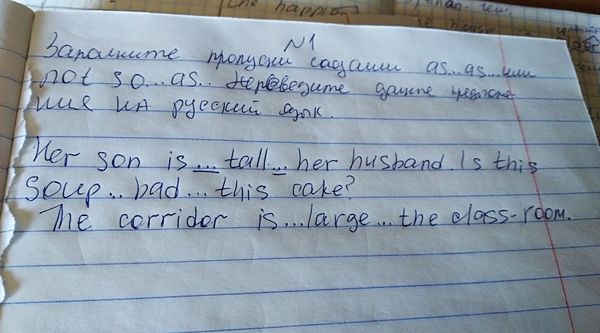 the happie
N1
Заполните пропуски садами as...as...или
not so...as.. Переведите данные предложе
ния на русский язык.
Her son is ... tall .. her husband. Is this
Soup .. bad ... this cake?
The corridor is...large...the class-room.